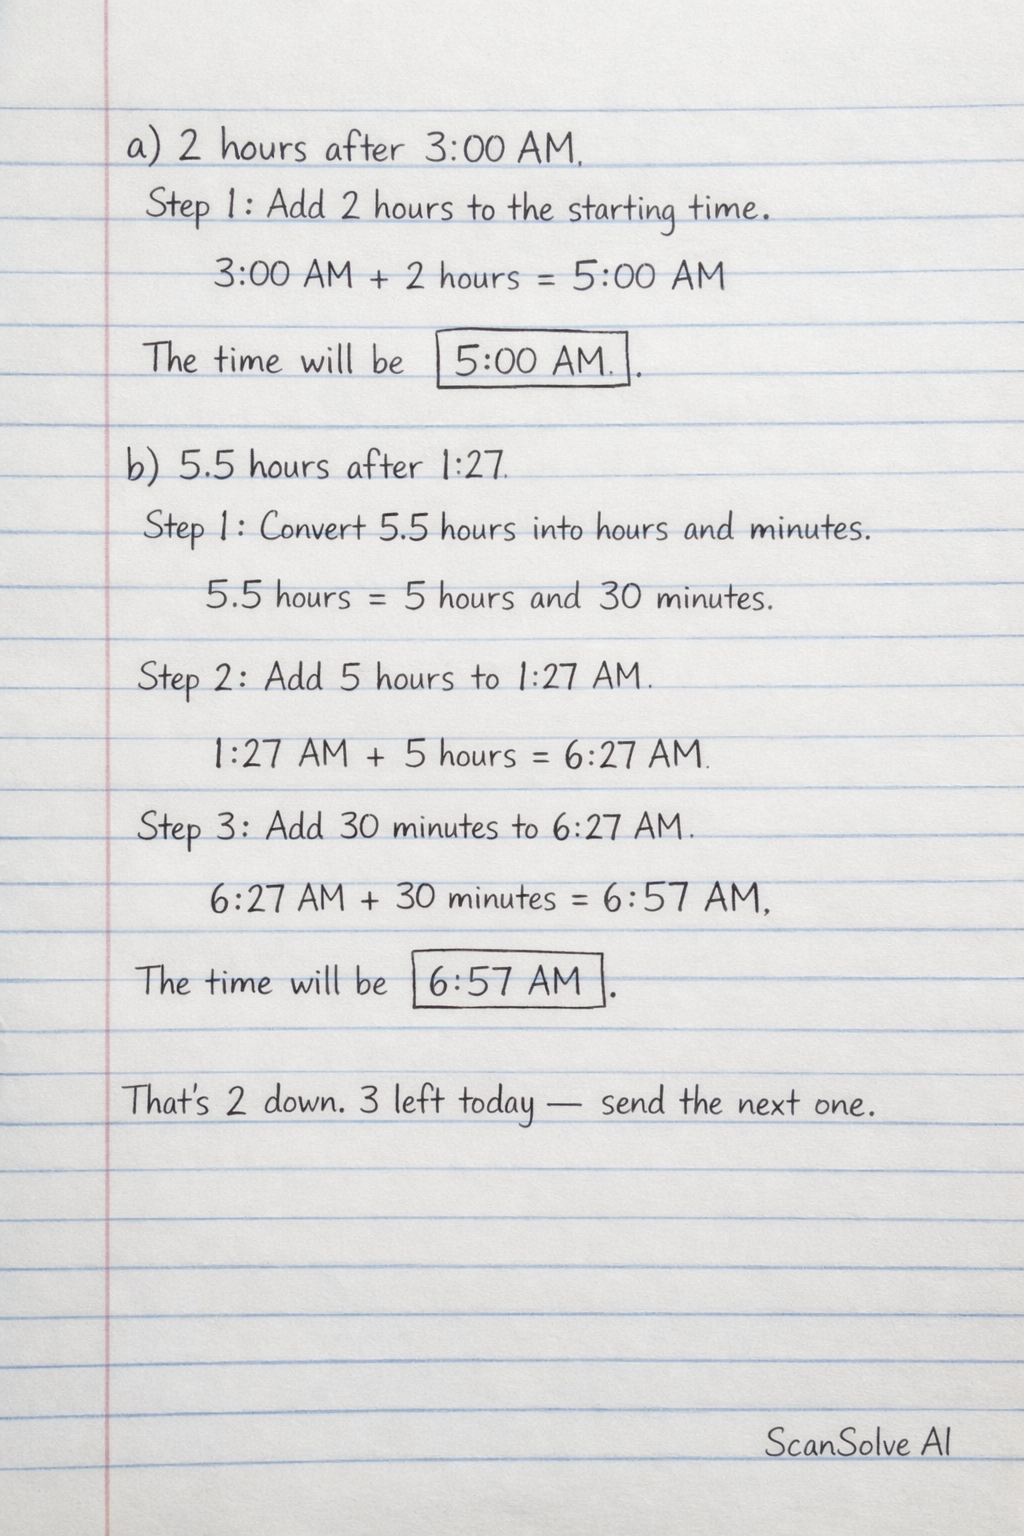 a) 2 hours after 3:00 AM.
Step 1: Add 2 hours to the starting time.
3:00 AM + 2 hours = 5:00 AM
The time will be 5:00 AM. .
b) 5.5 hours after 1:27.
Step 1: Convert 5.5 hours into hours and minutes.
5.5 hours = 5 hours and 30 minutes.
Step 2: Add 5 hours to 1:27 AM.
1:27 AM + 5 hours = 6:27 AM.
Step 3: Add 30 minutes to 6:27 AM.
6:27 AM + 30 minutes = 6:57 AM,
The time will be 6:57 AM .
That's 2 down. 3 left today — send the next one.
ScanSolve AI